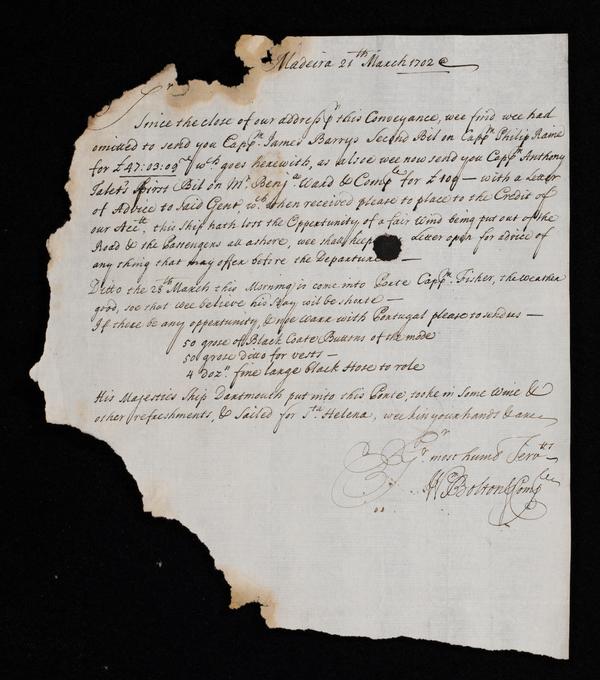 Madeira 21th March 1702
Sr
Since the close of our address pr this Conveyance, wee find wee had
omitted to send you Cappn. James Barrys Second Bil on Cappn Philip Raine
for £47:03:09 wch goes herewith, as alsoe wee now send you Cappn Anthony
first Bil on Mr. Benja Ward & Compa for £ — with a Letter
of Advice to said Gent. wch when received please to place to the Credit of
our Acctt. this Ship hath lost the Oppertunity of a fair Wind being put out of the
Road & the Passengers all ashore, wee shall keep Letter open for advice of
any thing that may offer before the Departure —
Ditto the 28th March this Morning is come into Porte Cappn. Fisher, the weather
good, soe that wee beleive his stay wil be shorte —
If there be any oppertunity, & noe Warr with Portugal please to send us —
50 grose of Black Coate Buttons of the mode
50 grose ditto for vests —
4 dozn. fine large black Hose to role
His Majesties Ship Dartmouth put into this Porte, tooke in Some Wine &
other refreshments, & Sailed for St. Helena, wee kis your hands & are
Sr
Yr most humb Servts
Wm Bolton & Compa